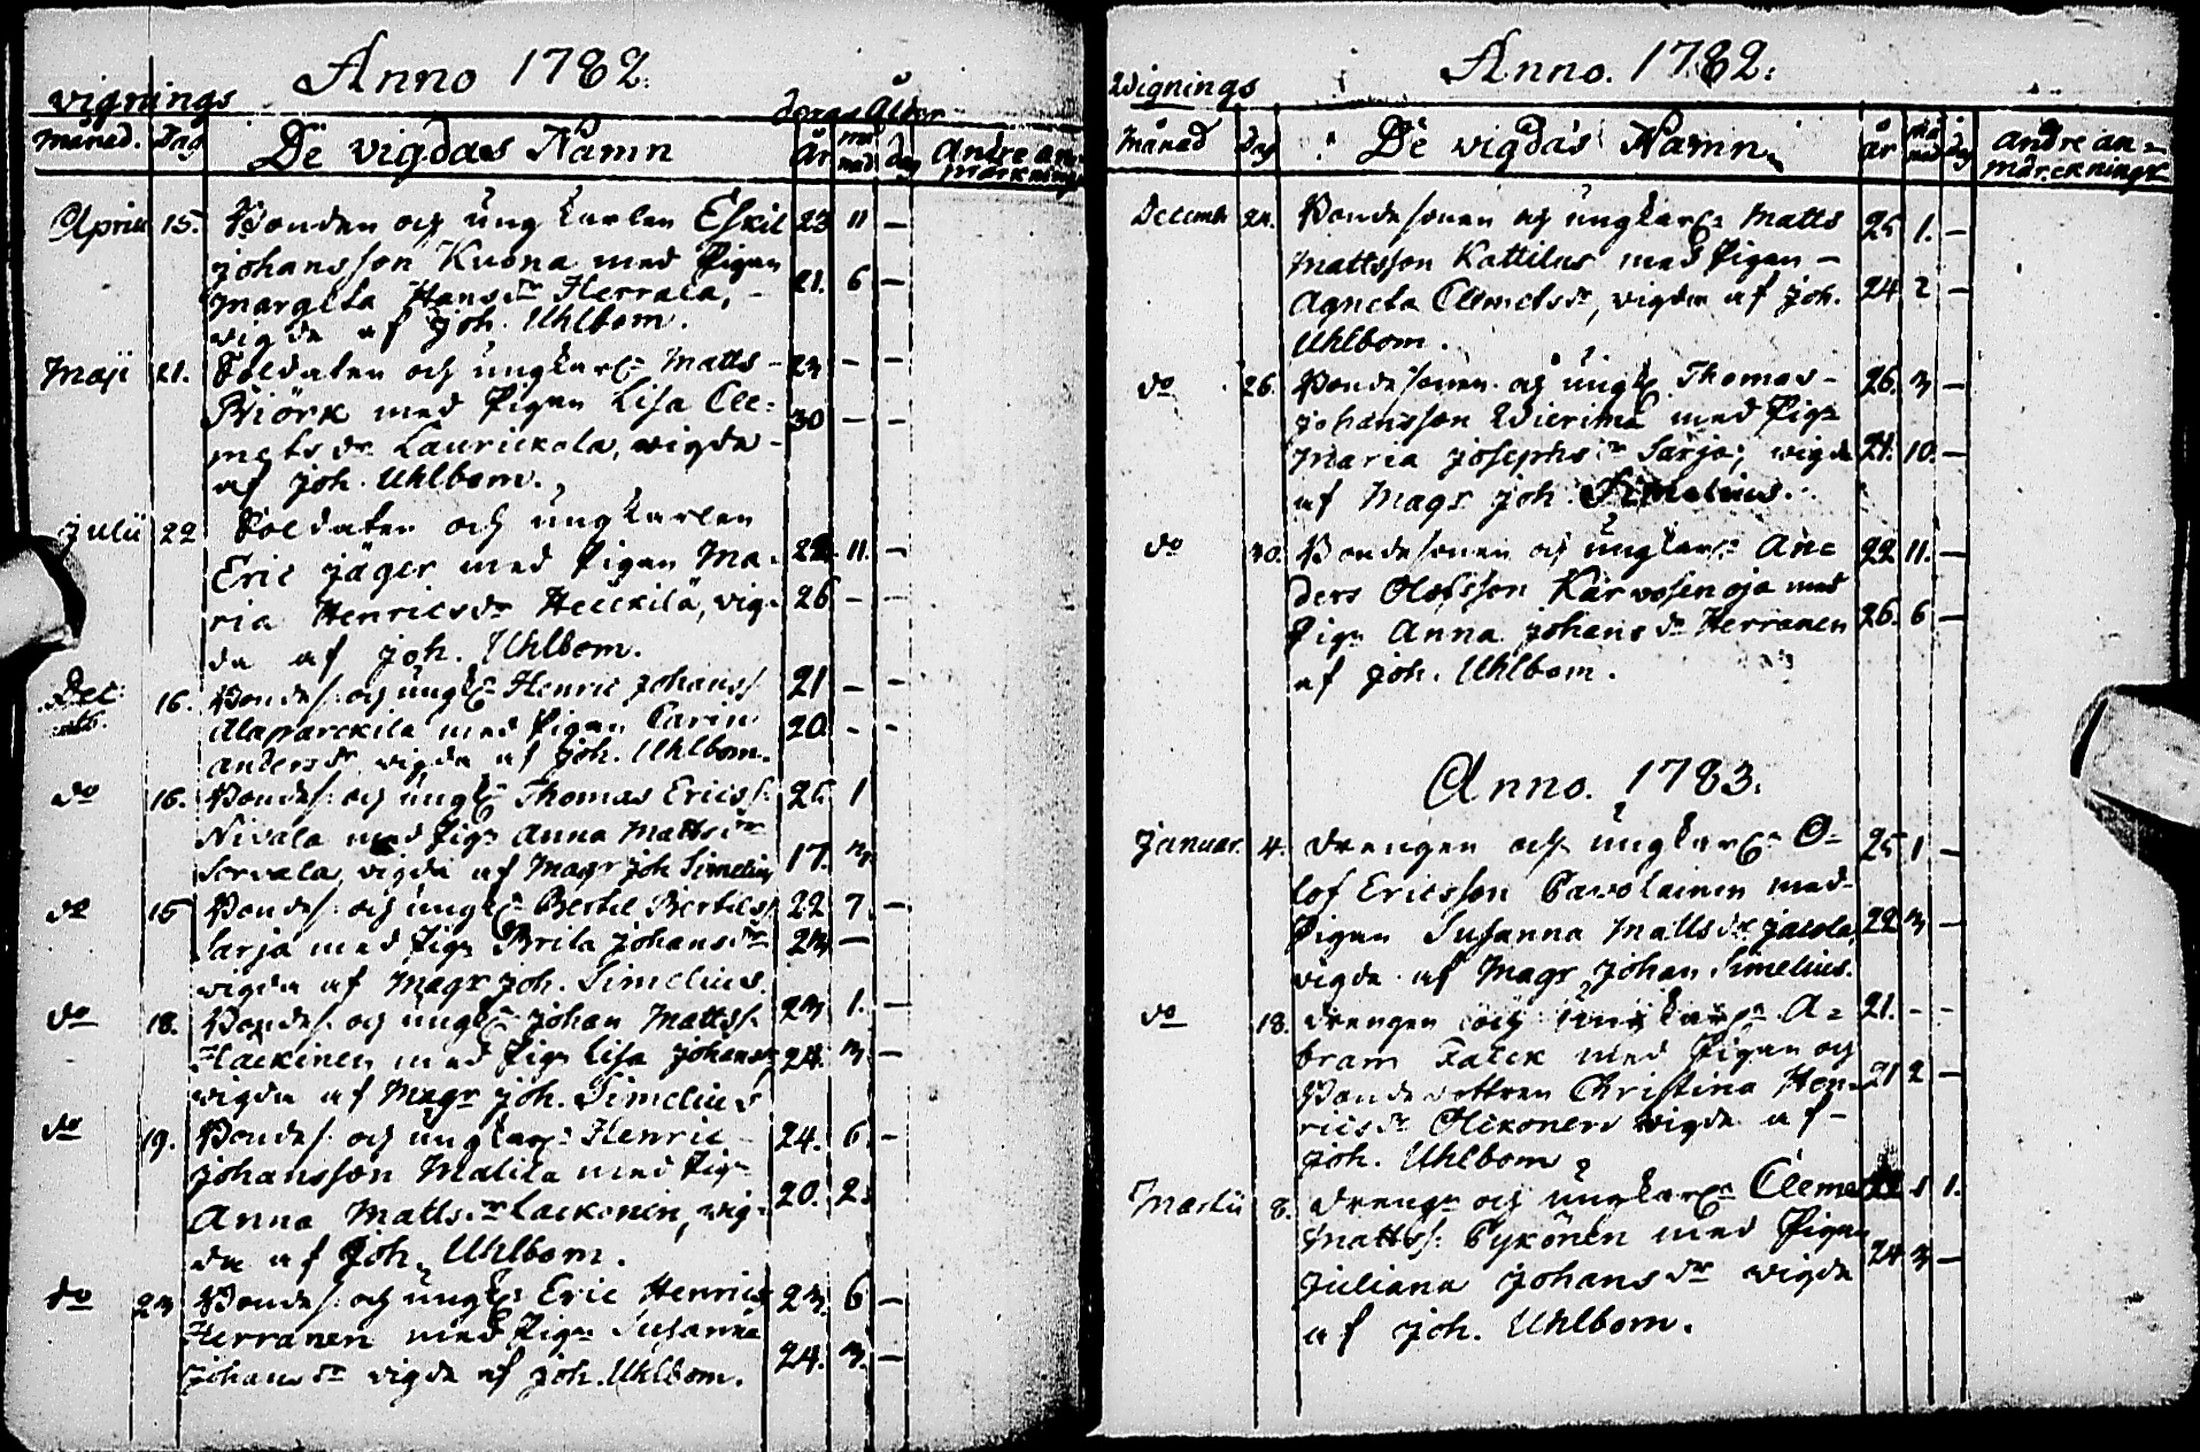 Anno 1782.
vignings
deras Ålder
Månad. Dag De vigdas Namn år må nad dag Andre an-
märckningr
Aprill 15. Bonden och ungkarlen Eskil 23 11 –
Johansson Kuona med Pigan
Margeta Hansdr Herrala, – 21. 6 –
vigda af Joh. Uhlbom.
Maji 21. Soldaten och ungkarln Matts – 23 – –
Biörk med Pigan Lisa Cle= 30 – –
metsdr Laurickola, vigda –
af Joh. Uhlbom.
Julii 22 Soldaten och ungkarlen
Eric Jäger med Pigan Ma- 11. –
ria Henricsdr Heickilä, vig- 26 – –
da af Joh. Uhlbom.
Dec: 16. Bondes. och ungk. Henric Johanss. 21 – –
Alaparckila med Pigan Carin 20 – –
Andersdr vigda af Joh. Uhlbom.
do 16. Bondes. och ungk. Thomas Ericss. 25. 1
Nivala med Pign Anna Mattsdr
Servala, vigda af Magr Joh Simelius 17. 3.
do 15 Bondes. och ungk. Bertil Bertilss. 22 7. –
Sarja med Pign Brita Johansdr 23 –
vigda af Magr Joh. Simelius.
do 18. Bondes. och ungk. Johan Mattss. 23 1. –
Hackinen med Pign Lisa Johansdr 24. 3. –
vigda af Magr Joh. Simelius
do 19. Bondes. och ungkarn Henric – 24. 6 –
Johansson Malila med Pign
Anna Mattsdr Lackonen, vig- 20. 2.
da af Joh. Uhlbom.
do 23 Bondes. och ungk. Eric Henrics 23. 6 –
Herranen med Pign Susanna
Johansdr vigda af Joh. Uhlbom. 24. 3. –
Anno. 1782.
Wignings
Månad dag De vigdas Namn år må nad dag andre an=
märckningr
Decemb 24. Bondesonen och ungkarln Matts 25 1. –
Mattsson Kattilus med Pigan –
Agneta Clemetsdr, vigda af Joh. 24 2 –
Uhlbom.
do 26. Bondesonen och ungk. Thomas – 26. 3 –
Johansson Wierima med Pign
Maria Josephsdr Sarja; vigda 21. 10. –
af Magr Joh. Simelius.
do 30. Bondesonen och ungkarln An= 22 11. –
ders Olofsson Kärvosenoja med
Pign Anna Johansdr Herranen 26. 6 –
af Joh. Uhlbom.
Anno. 1783.
Januar. 4. drengen och ungkarln O= 25 1 –
lof Ericsson Pavolainen med
Pigan Susanna Mattsdr Jacola, 22 3 –
vigda af Magr Johan Simelius.
do 18. drengen och ungkarln A= 21. – –
bram Falck med Pigan och
Bondedottren Christina Hen- 21 2 –
ricsdr Olckonen vigda af –
Joh. Uhlbom
Martii 8. drengn och ungkarln Clemet 1.
Mattss. Pykönen med Pigan
Juliana Johansdr vigda 24 3 –
af Joh. Uhlbom.